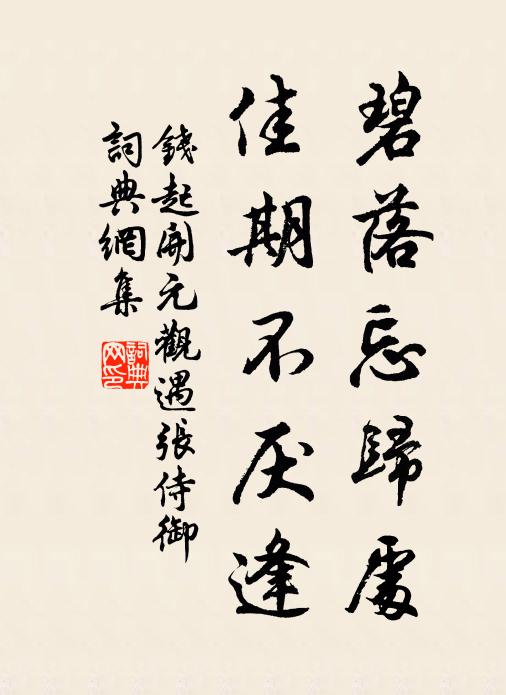 碧落忘歸處
佳期不厌逢
錢起開元觀遇張侍御
詞典網集
詞典
网印